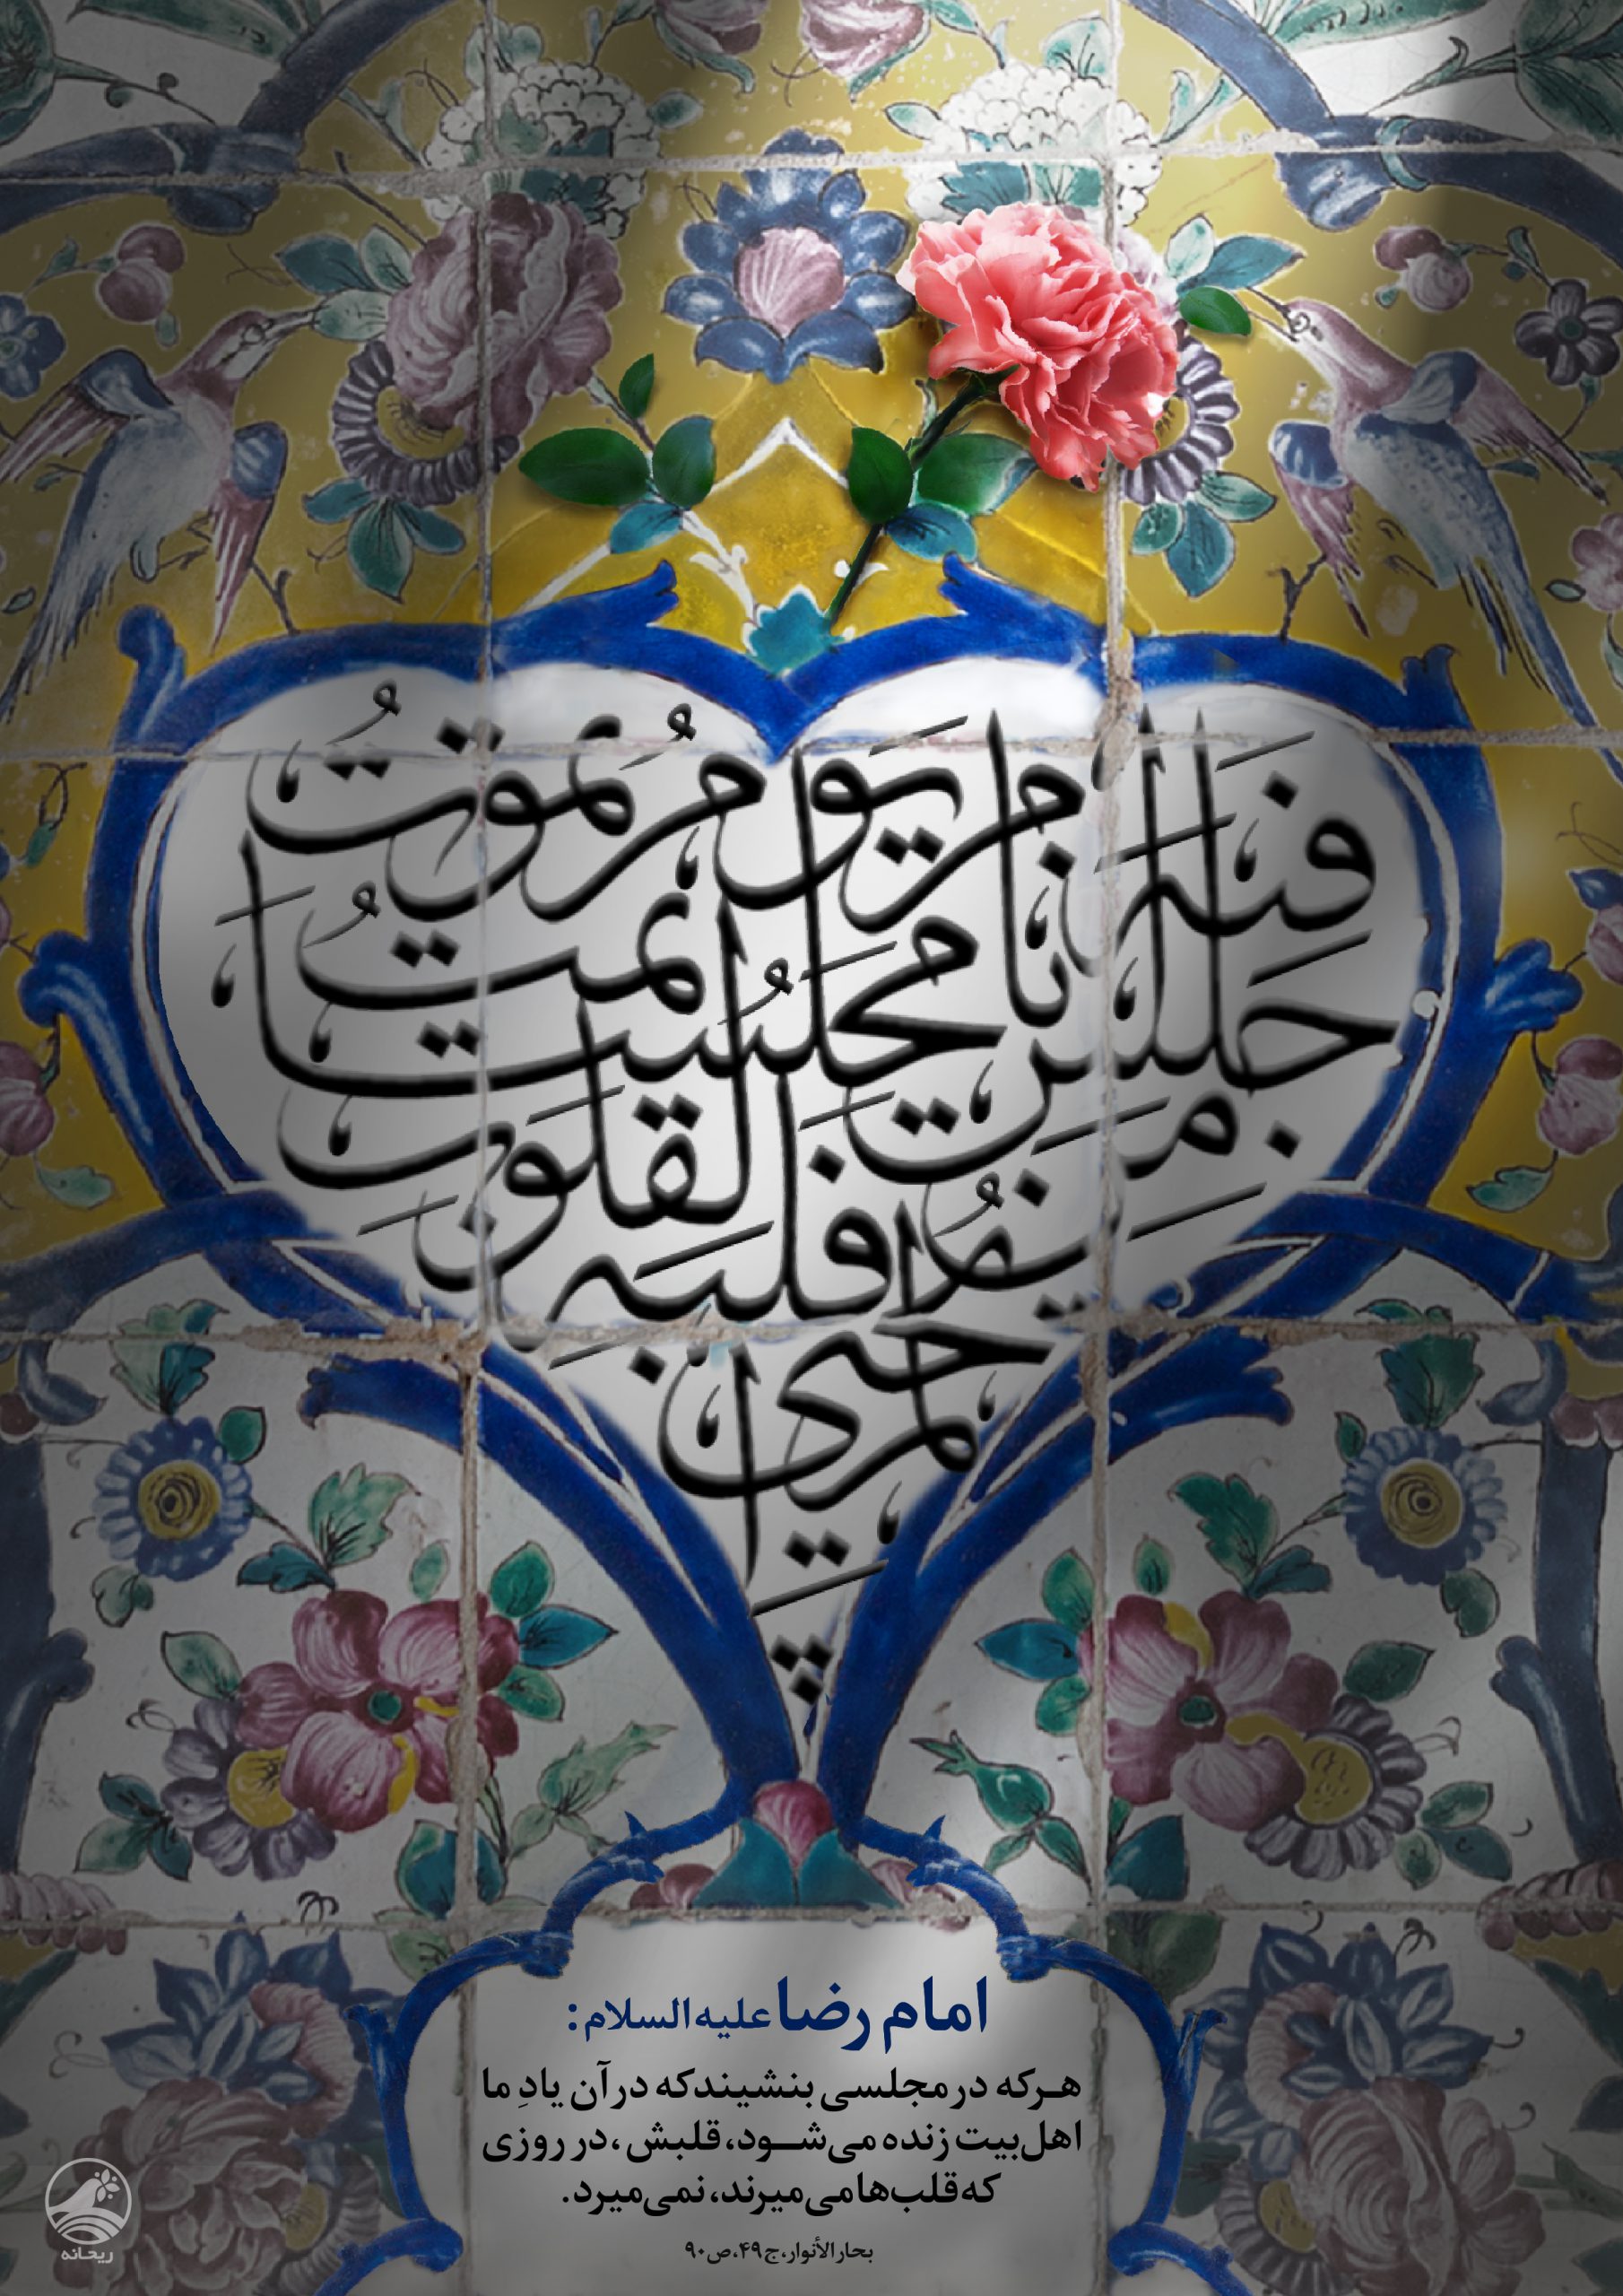 من جلس مجلسا یحیی فیه امرنا لم یمت قلبه یوم تموت القلوب
امام رضا علیه السلام:
هرکه در مجلسی بنشیند که در آن یادِ ما
اهل‌بیت زنده می‌شود، قلبش، در روزی
که قلب‌ها می‌میرند، نمی‌میرد.
بحار الأنوار، ج۴۹، ص۹۰
ریحانه